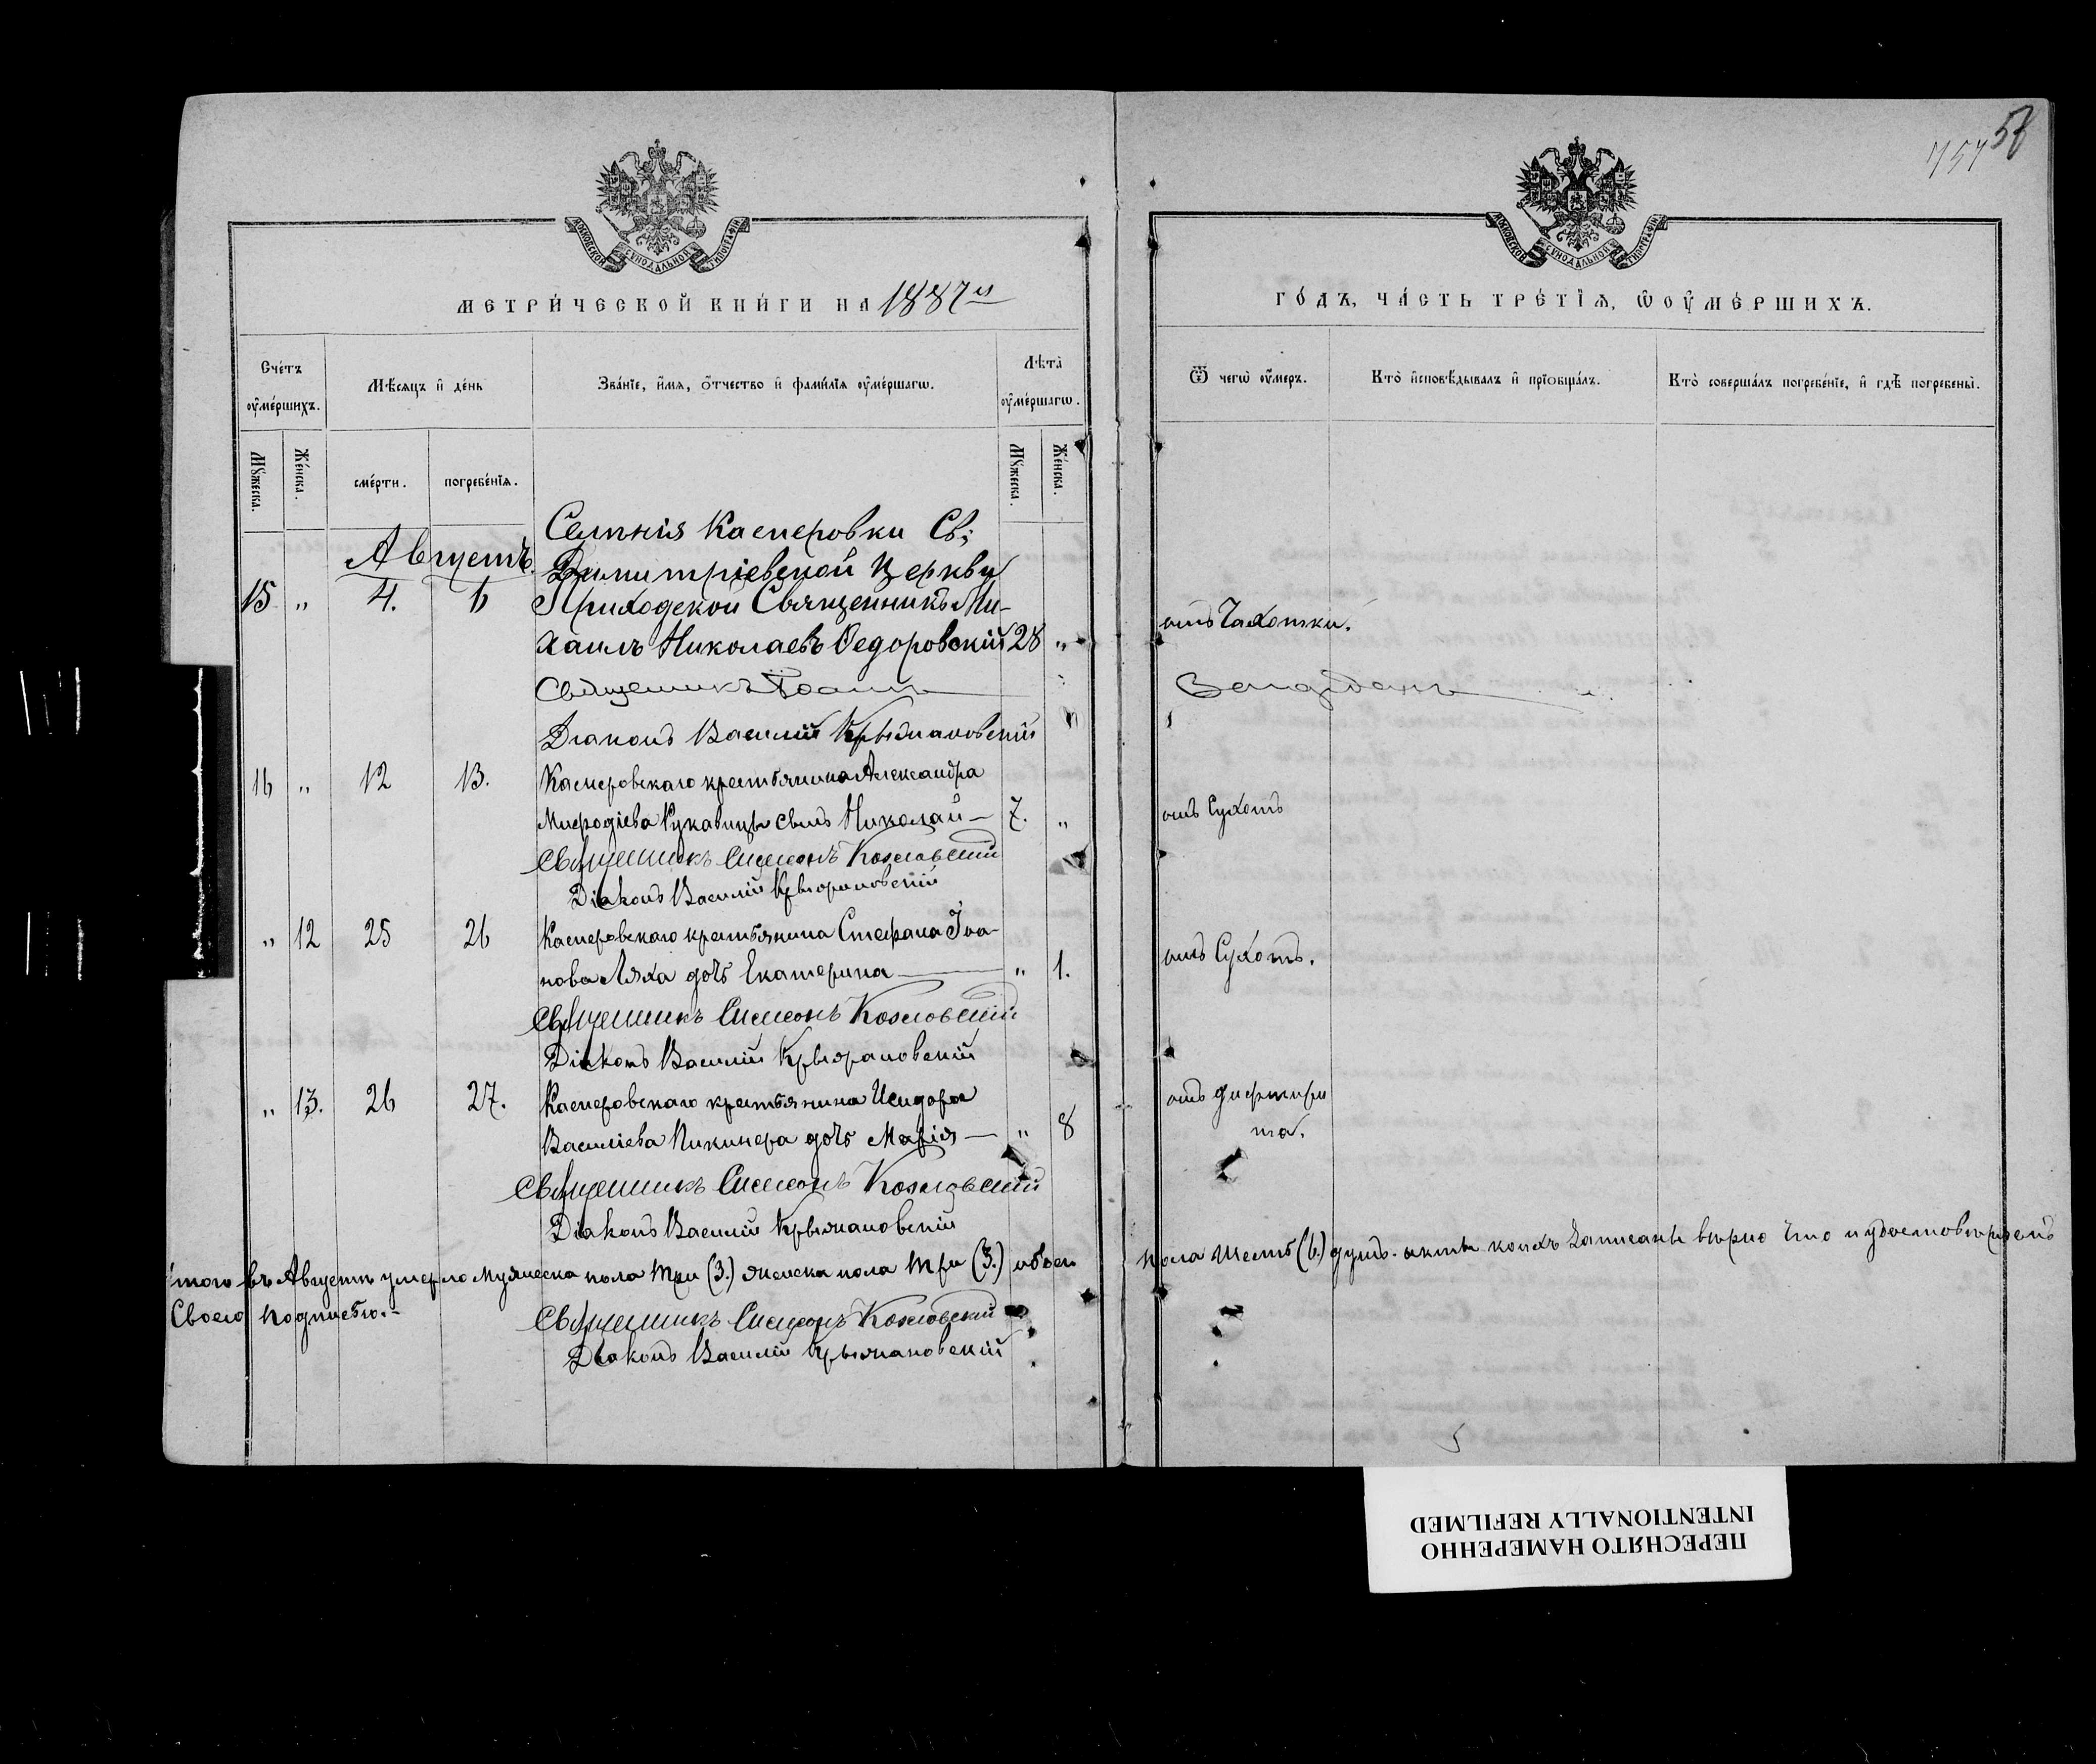 757 58
МОСКОВСКОЙ СѴНОДАЛЬНОЙ ТИПОГРАФІИ
МОСКОВСКОЙ СѴНОДАЛЬНОЙ ТИПОГРАФІИ
МЕТРИ́ЧЕСКОЙ КНИ́ГИ НА 1887й
ГО́ДЪ, ЧА́СТЬ ТРЕ́ТЇѦ, Ѡ҆ ОУ҆МЕ́РШИХЪ.
Сче́тъ оу҆ме́ршихъ.
Мѣ́сяцъ и҆ де́нь
Зва́нїе, и҆́мя, ѻ҆́тчество и҆ фами́лїя оу҆ме́ршагѡ.
Лѣ́та̀ оу҆ме́ршагѡ.
Ѿ чегѡ̀ оу҆́меръ.
Кто̀ и҆сповѣ́дывалъ и҆ прїѡбща́лъ.
Кто̀ соверша́лъ погребе́нїе, и҆ гдѣ̀ погребены̀.
Мꙋ́жеска.
Же́нска.
сме́рти.
погребе́нїя.
Мꙋ́жеска.
Же́нска.
Селенія Касперовки Св:
Августъ. Димитріевской Церкви
15 „ 4. 6 Приходской Священникъ Ми-
хаилъ Николаевъ Ѳедоровскій 28 „ отъ Чахотки.
Священникъ Іоаннъ
Діаконъ Василій Крыжановскій
16 „ 12 13. Касперовскаго крестьянина Александра
Мефодіева Рукавицы сынъ Николай – 7. „ отъ Сухотъ
Священникъ Симеонъ Козловскій
Діаконъ Василій Крыжановскій
„ 12 25 26 Касперовскаго крестьянина Стефана Іоа-
нова Ляха дочь Екатерина — „ 1. отъ Сухотъ.
Священникъ Симеонъ Козловскій
Діаконъ Василій Крыжановскій
„ 13. 26 27. Касперовскаго крестьянина Исидора отъ дифтери
Василіева Пикинера дочь Марія — „ 8 та.
Священникъ Симеонъ Козловскій
Діаконъ Василій Крыжановскій
Итого въ Августѣ умерло Мужеска пола три (3.) женска пола три (3.) обоего пола шесть (6.) душъ. акты коихъ записаны вѣрно что и удостовѣряемъ
Своею подписью.-
Священникъ Симеонъ Козловскій
Діаконъ Василій Крыжановскій
5
ПЕРЕСНЯТО НАМЕРЕННО
INTENTIONALLY REFILMED